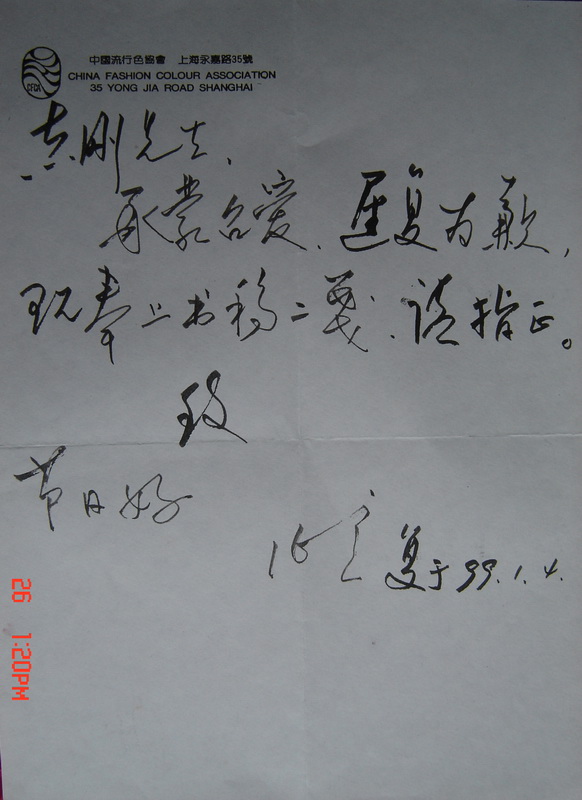 中國流行色協會 上海永嘉路35號
CHINA FASHION COLOUR ASSOCIATION
35 YONG JIA ROAD SHANGHAI
CFCA
刚先生、
承蒙台爱、迟复为歉，
现奉上书稿二笺、请指正。
致
节日好
复于99.1.4.
26 1:20PM